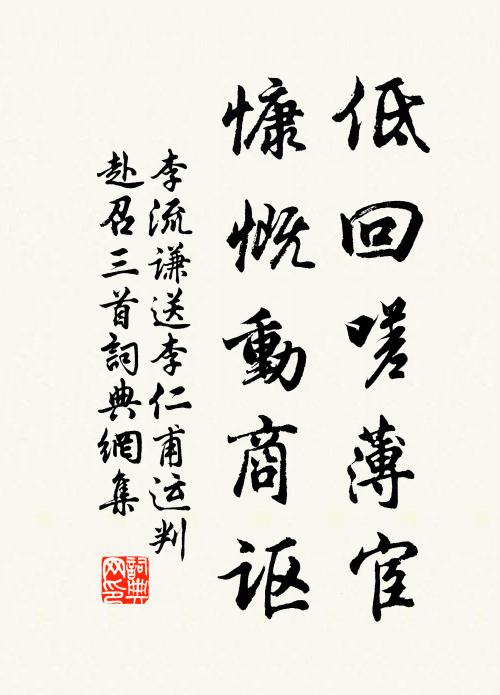 低回嗟薄宦
慷慨動商讴
李流谦送李仁甫运判
赴召三首詞典網集
詞典
网印